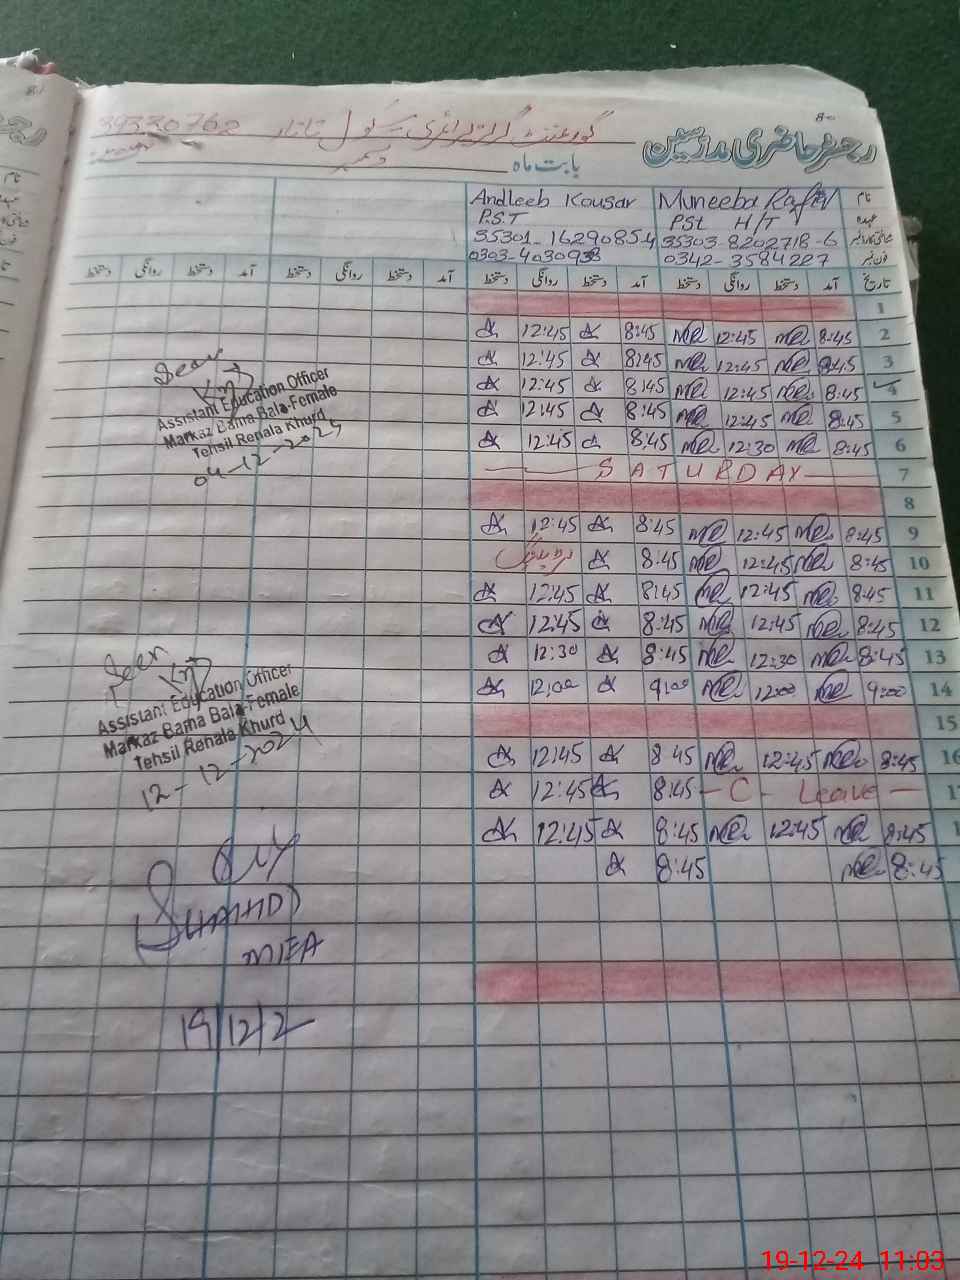 80
رجسٹر حاضری مدرسین
گورنمنٹ گرلز پرائمری سکول تاتار 39330762
بابت ماہ دسمبر
نام Muneeba Rafiq Andleeb Kousar
عہدہ PSt H/T P.S.T
35303-8202718-6 35301-16290854
فون نمبر 0342-3584227 0303-4030938
تاریخ آمد دستخط روانگی دستخط آمد دستخط روانگی دستخط آمد دستخط روانگی دستخط آمد دستخط روانگی دستخط
1
12:45 8:45 12:45 8:45 2
12:45 8:45 12:45 8:45 3
12:45 8:45 12:45 8:45 4
12:45 8:45 12:45 8:45 5
12:45 8:45 12:30 8:45 6
SATURDAY 7
8
12:45 8:45 12:45 8:45 9
8:45 12:45 8:45 10
12:45 8:45 12:45 8:45 11
12:45 8:45 12:45 8:45 12
12:30 8:45 12:30 8:45 13
12:00 9:00 12:00 9:00 14
15
12:45 8:45 12:45 8:45 16
12:45 8:45 - C - Leave - 1
12:45 8:45 12:45 8:45 1
8:45 8:45
Seen
Assistant Education Officer
Markaz Bama Bala-Female
Tehsil Renala Khurd
04-12-2025
Seen
Assistant Education Officer
Markaz Bama Bala-Female
Tehsil Renala Khurd
12-12-2024
MEA
19/12/2
19-12-24 11:03